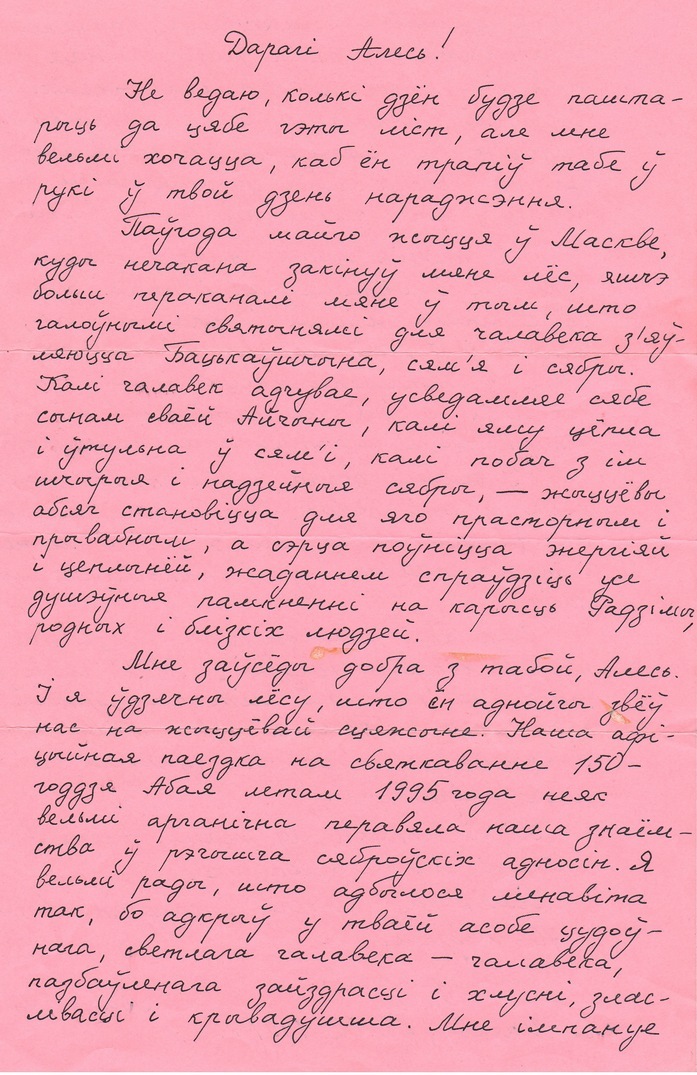 Дарагі Алесь!
Не ведаю, колькі дзён будзе пашта-
рыць да цябе гэты ліст, але мне
вельмі хочацца, каб ён трапіў табе ў
рукі ў твой дзень нараджэння.
Паўгода майго жыцця ў Маскве,
куды нечакана закінуў мяне лёс, яшчэ
больш пераканалі мяне ў тым, што
галоўнымі святынямі для чалавека з'яў-
ляюцца Бацькаўшчына, сям'я і сябры.
Калі чалавек адчувае, усведамляе сябе
сынам сваёй Айчыны, калі яму цёпла
і ўтульна ў сям'і, калі побач з ім
шчырыя і надзейныя сябры, — жыццёвы
абсяг становіцца для яго прасторным і
прывабным, а сэрца поўніцца энергіяй
і цеплынёй, жаданнем спраўдзіць усе
душэўныя памкненні на карысць Радзімы,
родных і блізкіх людзей.
Мне заўсёды добра з табой, Алесь.
І я ўдзячны лёсу, што ён аднойчы звёў
нас на жыццёвай сцяжыне. Наша афі-
цыйная паездка на святкаванне 150-
годдзя Абая летам 1995 года неяк
вельмі арганічна перавяла наша знаём-
ства ў рэчышча сяброўскіх адносін. Я
вельмі рады, што адбылося менавіта
так, бо адкрыў у тваёй асобе цудоў-
нага, светлага чалавека — чалавека,
пазбаўленага зайздрасці і хлусні, злас-
лівасці і крывадушша. Мне імпануе